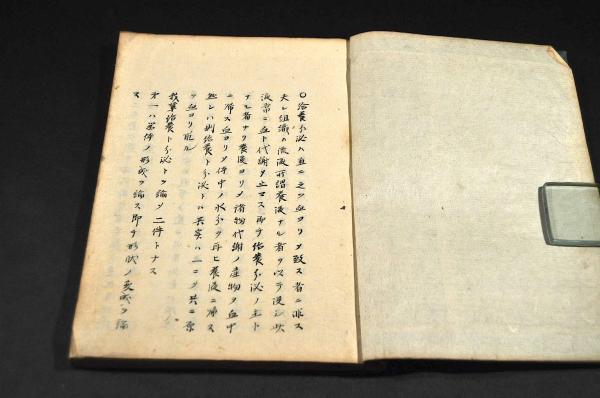 ○給養分泌ハ直ニ之ヲ血ヨリメ致ス者ニ非ス
夫レ組織ハ流液所謂養液ナル者ヲ以テ浸
液常ニ血ト代謝シ止マス即チ給養分泌ノ主ト
ナル者ナリ養液ヨリメ諸物代謝ノ産物ヲ血中
ニ帰ス血ヨリメ体中ノ成分ヲ再ヒ養液ニ帰ス
然レハ則給養ト分泌トハ其実ハ一ニメ共ニ原
ヲ血ヨリ取ル
我輩給養ト分泌トヲ論メ二件トナス
第一ハ器体ノ形成ヲ論ス即チ形状ノ変成ヲ論
ス